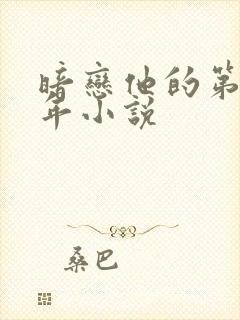 暗戀他的第
年小說
桑巴